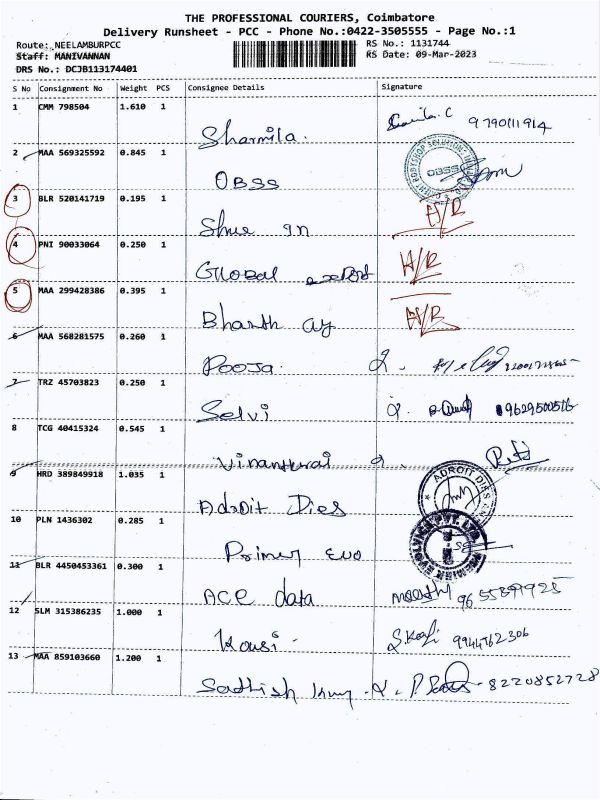 THE PROFESSIONAL COURIERS, Coimbatore
Delivery Runsheet - PCC - Phone No.:0422-3505555 - Page No.:1
Route: NEELAMBURPCC RS No.: 1131744
Staff: MANIVANNAN RS Date: 09-Mar-2023
DRS No.: DCJB113174401
S No Consignment No Weight PCS Consignee Details Signature
1 CMM 798504 1.610 1
Sharmila. 9790111914
2 MAA 569325592 0.845 1
OBSS OBSS
3 BLR 520141719 0.195 1
Shue in
4 PNI 90033064 0.250 1
Global
5 MAA 299428386 0.395 1
Bharth ay
6 MAA 568281575 0.260 1
Pooja.
7 TRZ 45703823 0.250 1
Selvi 9629500516
8 TCG 40415324 0.545 1
9 HRD 389849918 1.035 1
Adroit Dies ADROIT DIES
10 PLN 1436302 0.285 1
Primer Evo
11 BLR 4450453361 0.300 1
ACE data
12 SLM 315386235 1.000 1
Kousi - 9944762306
13 MAA 859103660 1.200 1
Sathish 8220852728